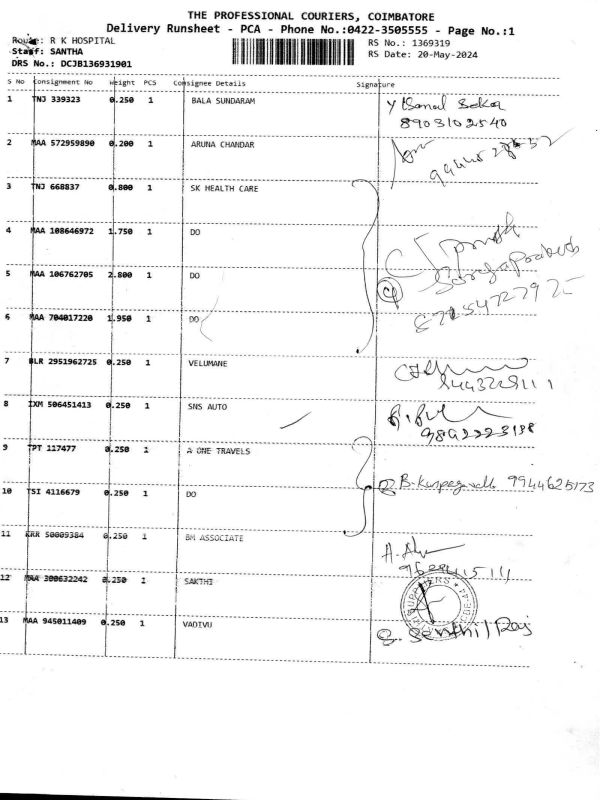 THE PROFESSIONAL COURIERS, COIMBATORE
Delivery Runsheet - PCA - Phone No.:0422-3505555 - Page No.:1
Route: R K HOSPITAL
RS No.: 1369319
Staff: SANTHA
RS Date: 20-May-2024
DRS No.: DCJB136931901
S No Consignment No Weight PCS Consignee Details Signature
1 TNJ 339323 0.250 1 BALA SUNDARAM
8903102540
2 MAA 572959890 0.200 1 ARUNA CHANDAR
3 TNJ 668837 0.800 1 SK HEALTH CARE
4 MAA 108646972 1.750 1 DO
5 MAA 106762705 2.800 1 DO
6 MAA 704017220 1.950 1 DO
7 BLR 2951962725 0.250 1 VELUMANE
9443229111
8 IXM 506451413 0.250 1 SNS AUTO
9 TPT 117477 0.250 1 A ONE TRAVELS
9944625173
10 TSI 4116679 0.250 1 DO
11 KRR 50009384 0.250 1 BM ASSOCIATE
12 MAA 300632242 0.250 1 SAKTHI
13 MAA 945011409 0.250 1 VADIVU
S. Senthil Raj